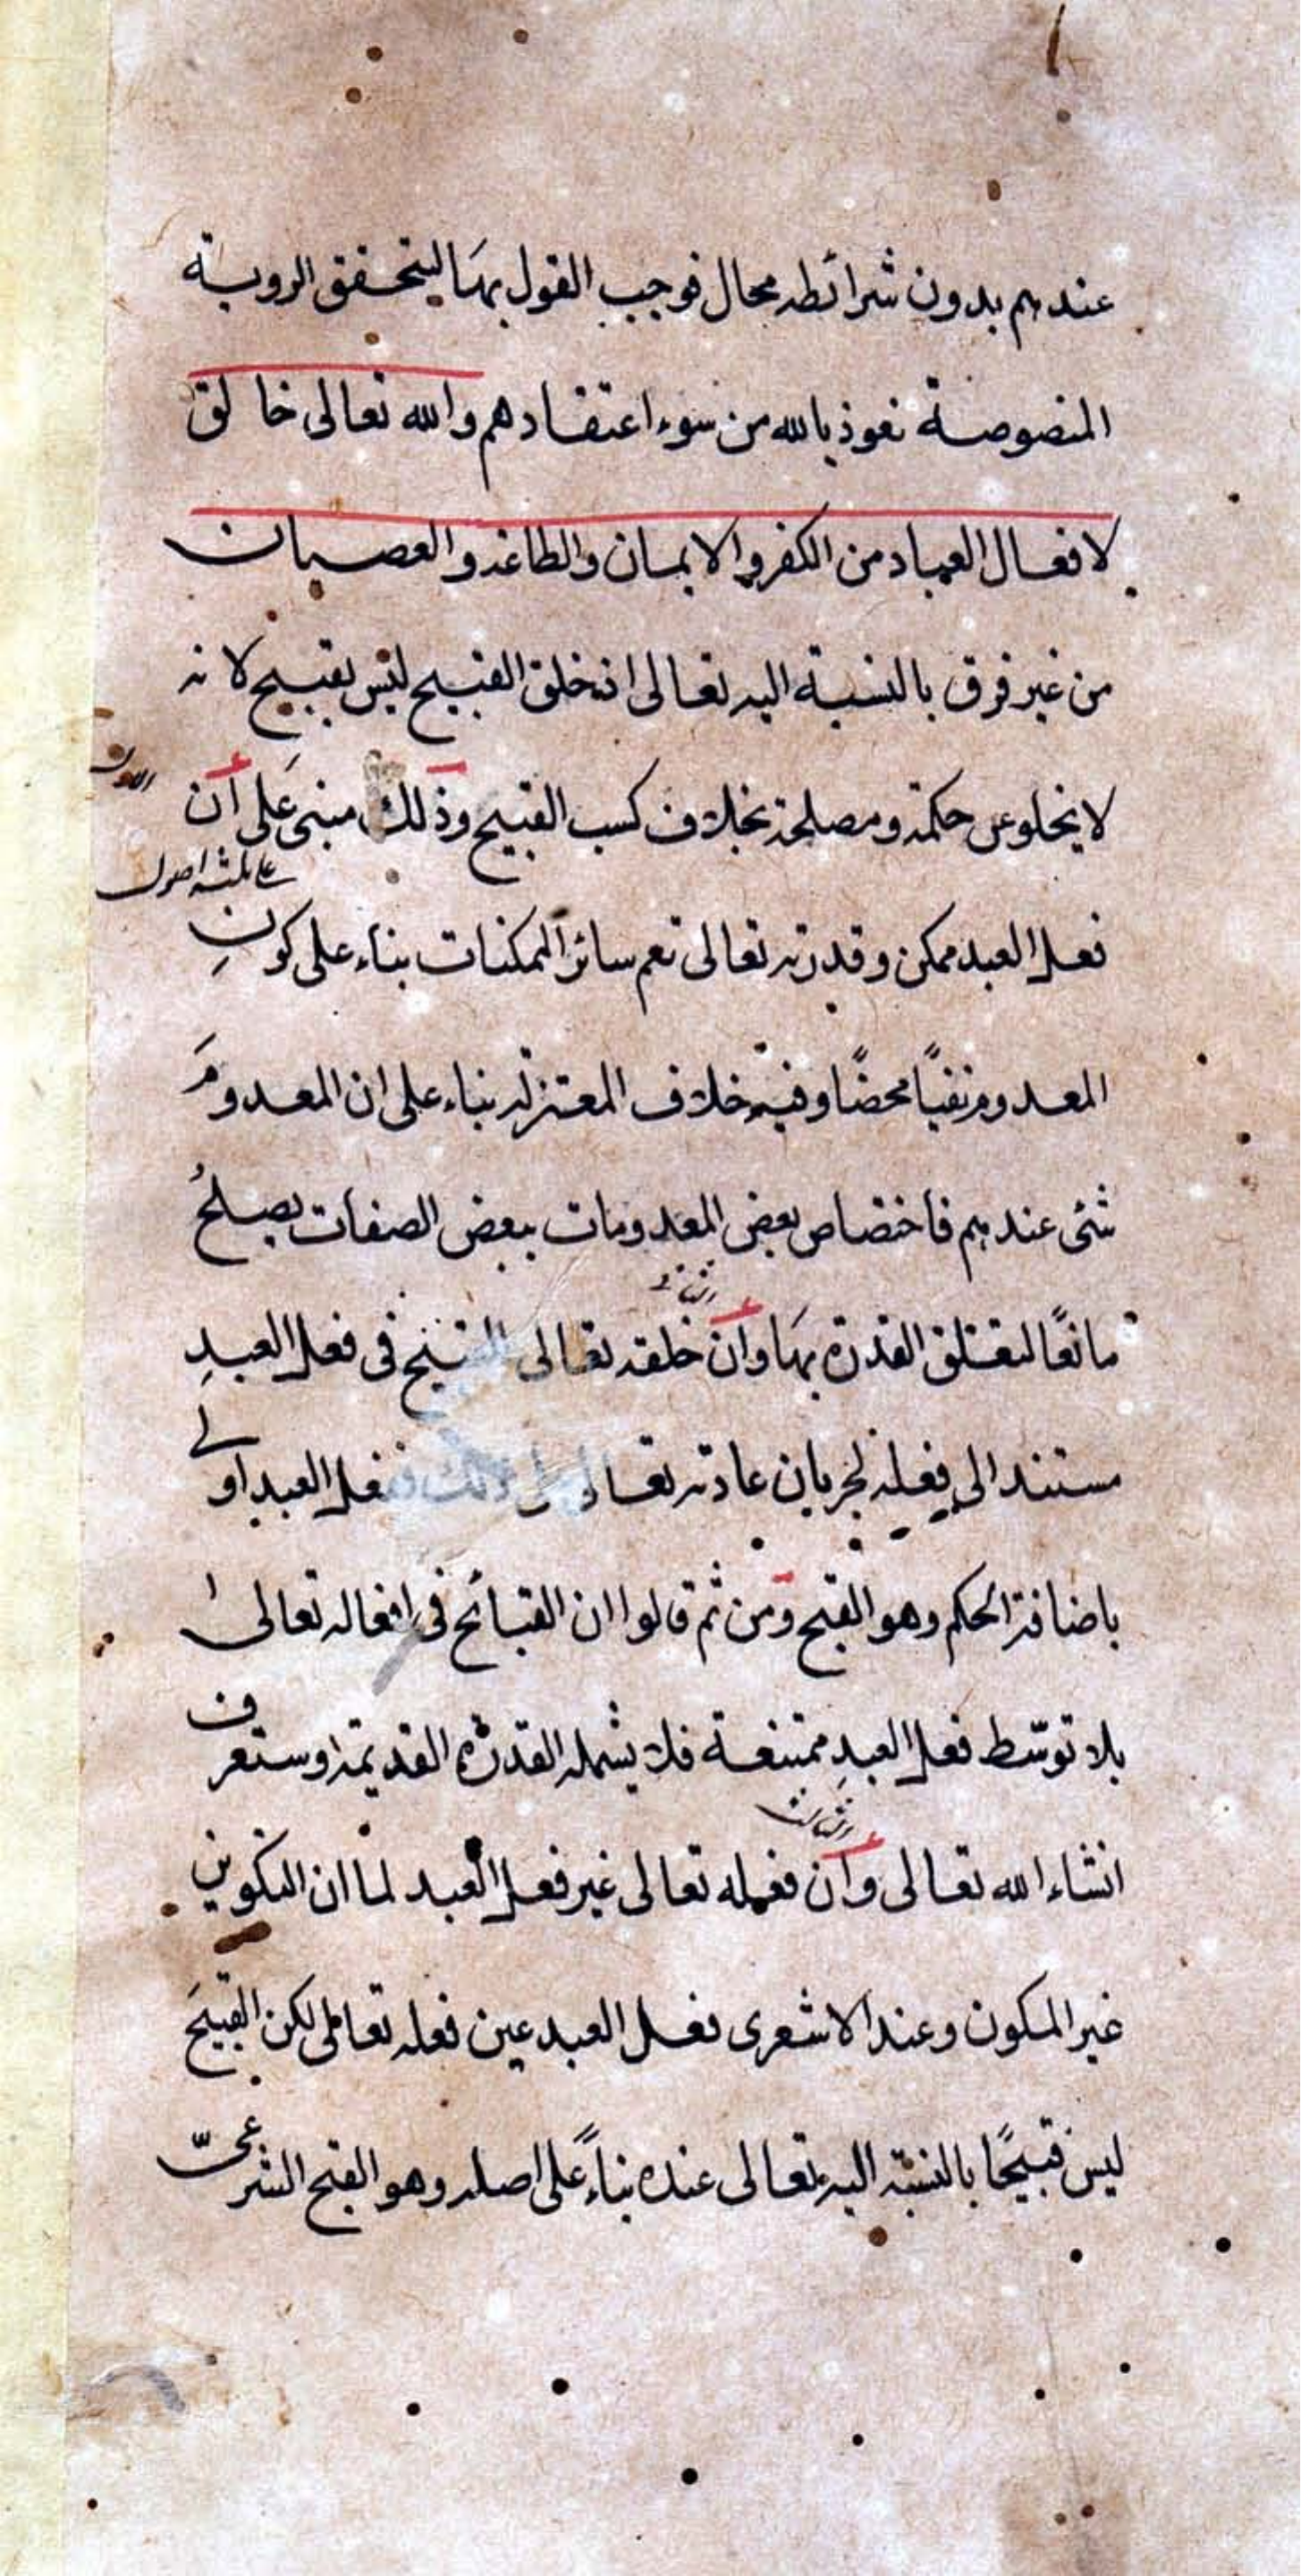 عندهم بدون شرائطه محال فوجب القول بهَا ليتحقق الروية
المنصوصة نعوذ بالله من سوء اعتقادهم والله تعالى خالق
لافعال العباد من الكفر والايمان والطاعة والعصيان
من غير فرق بالنسبة اليه تعالى اذ خلق القبيح ليس بقبيح لانه
لا يخلو عن حكمة ومصلحة بخلاف كسب القبيح وذلك مبنى عَلى أن
الاول
على ثلثه اصول
فعل العبد ممكن وقدرته تعالى تعم سائر الممكنات بناء على كونِ
المعدوم نفيًا محضًا وفيه خلاف المعتزلة بناء على ان المعدومَ
شئ عندهم فاختصاص بعض المعدومات ببعض الصفات يصلحُ
مانعًا لتعلق القدرة بهَا وأن خلقه تعالى القبيح فى فعل العبدِ
والثانى
مستند الى فعله لجريان عادته تعالى على ذلك ففعل العبد اولى
باضافة الحكم وهو القبح ومن ثم قالوا ان القبائح فى افعاله تعالى
بلا توسّط فعل العبدِ ممتنعة فلا يشمله القدرة القديمة وستعرف
انشاء الله تعالى وأن فعله تعالى غير فعل العبد لما ان التكوين
والثالث
غير المكون وعند الاشعرى فعل العبد عين فعله تعالى لكن القبيحَ
ليس قبيحًا بالنسبة اليه تعالى عنده بناءً على اصله وهو القبح الشرعىّ